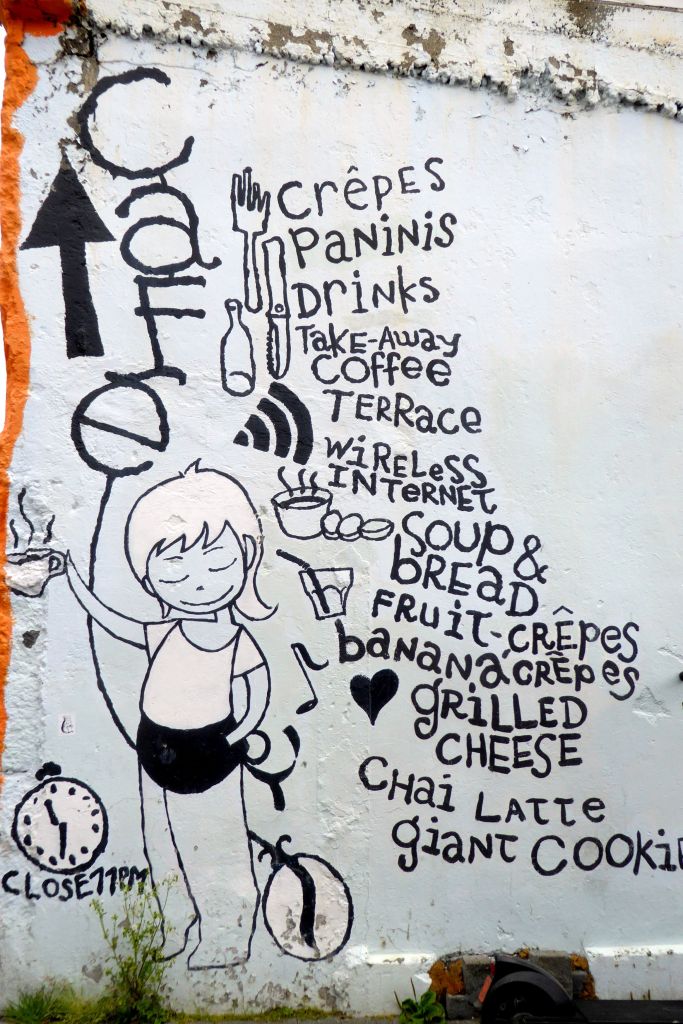 Café
CrêPES
PANINIS
DrINKS
TAKE-AWAY
COFFEE
TERRACE
WiRELeSS
INTERNET
SOUP &
bREAD
FRUIT-CRÊPES
bANANA CRÊPES
gRILLED
CHEESE
CHai LATTe
giANT COOKiE
CLOSE 11PM